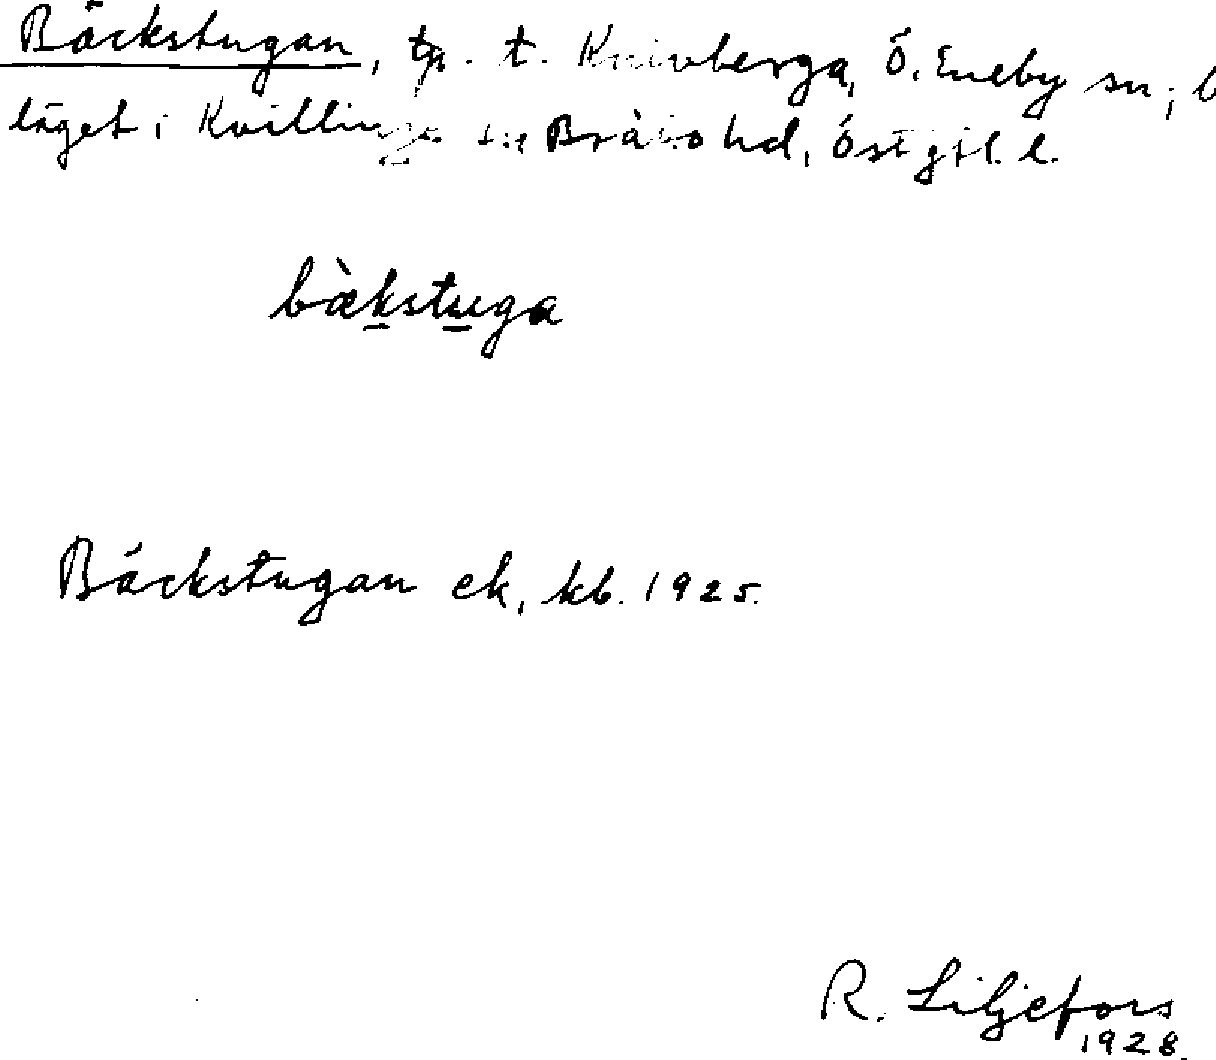 Bäckstugan, tp. t. Knivberga, Ö. Eneby sn; b
läget i Kvillinge sn Bråbo hd, Östgötl. l.
bækstuga
Bäckstugan ek, kb. 1925.
R. Liljefors
1928.